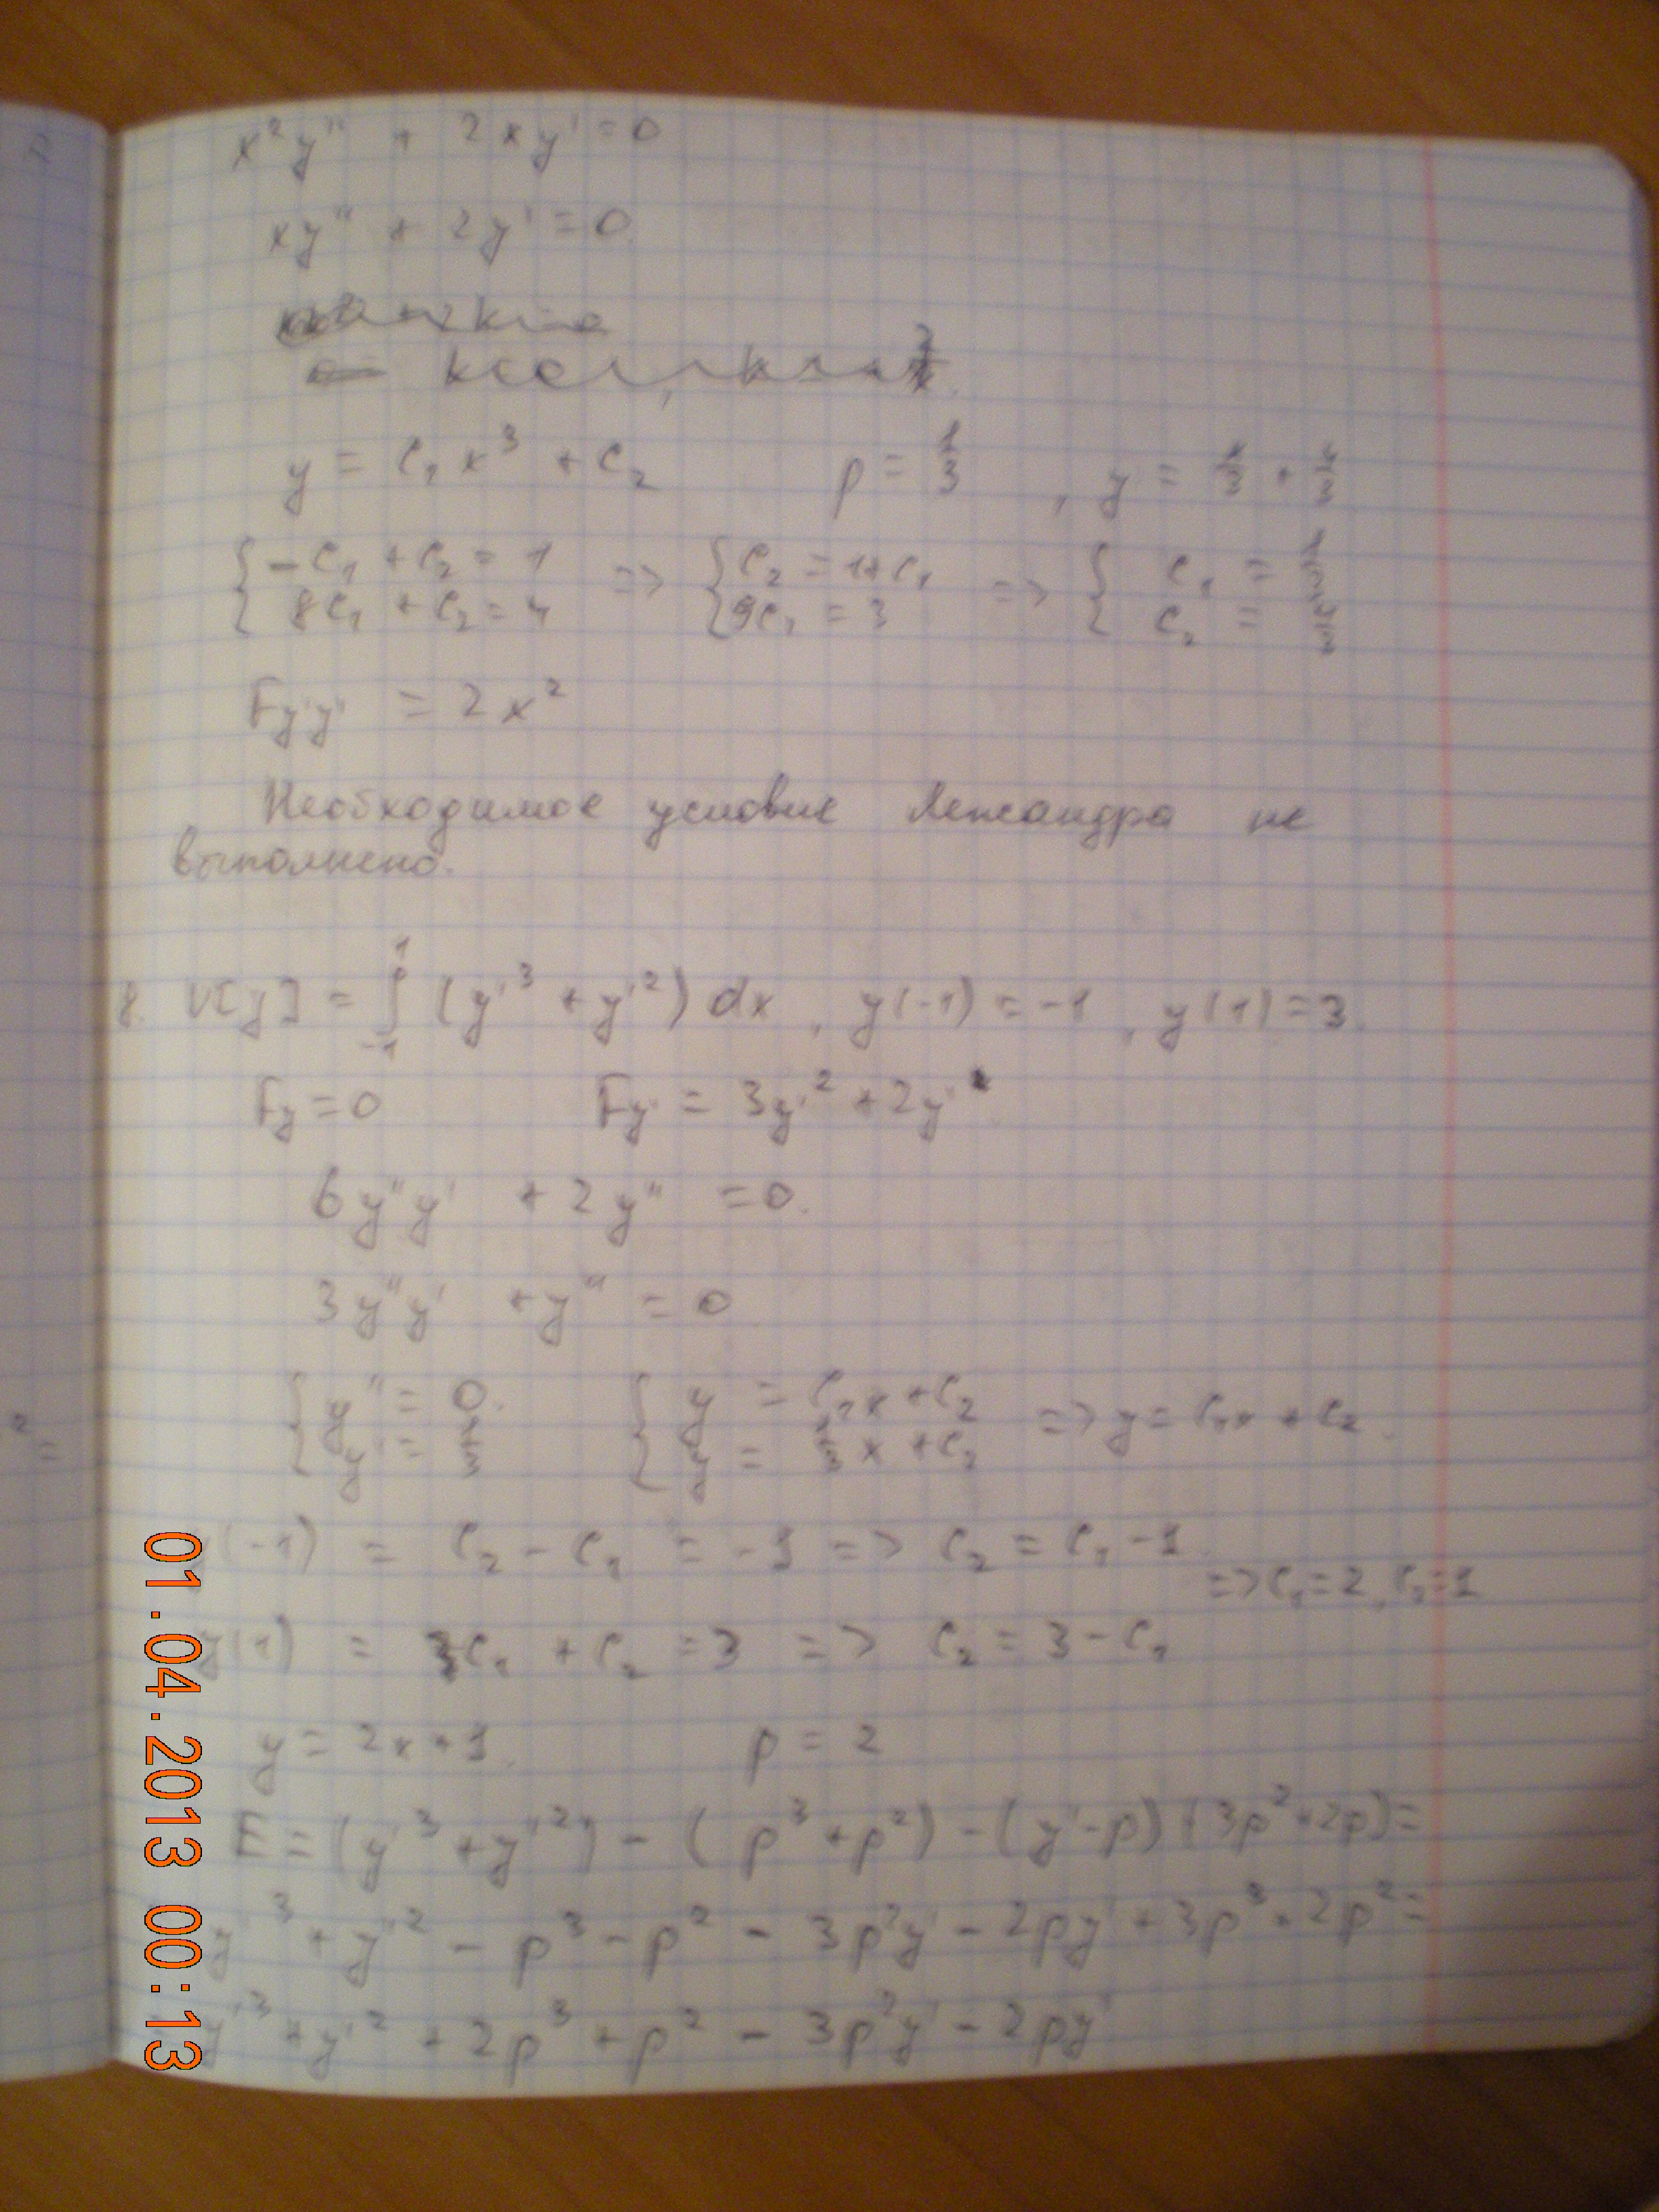 x²y'' + 2xy' = 0
xy'' + 2y' = 0.
y = C₁x³ + C₂ p = 1/3 , y = x/3 + 4/3
{ -C₁ + C₂ = 1 => { C₂ = 1 + C₁ => { C₁ = 1/3
{ 8C₁ + C₂ = 4 { 9C₁ = 3 { C₂ = 4/3
Fy'y' = 2x²
Необходимое условие Лежандра не
выполнено.
8. V[y] = ∫₋₁¹ (y'³ + y'²) dx , y(-1) = -1 , y(1) = 3.
Fy = 0 Fy' = 3y'² + 2y'
6y''y' + 2y'' = 0.
3y''y' + y'' = 0
{ y'' = 0. { y = C₁x + C₂ => y = C₁x + C₂.
{ y' = 1/3 { y = 1/3 x + C₂
y(-1) = C₂ - C₁ = -1 => C₂ = C₁ - 1.
=> C₁ = 2, C₂ = 1
y(1) = C₁ + C₂ = 3 => C₂ = 3 - C₁
y = 2x + 1. p = 2
E = (y'³ + y'²) - (p³ + p²) - (y' - p)(3p² + 2p) =
y'³ + y'² - p³ - p² - 3p²y' - 2py' + 3p³ + 2p² =
y'³ + y'² + 2p³ + p² - 3p²y' - 2py'
2 =
01.04.2013 00:13